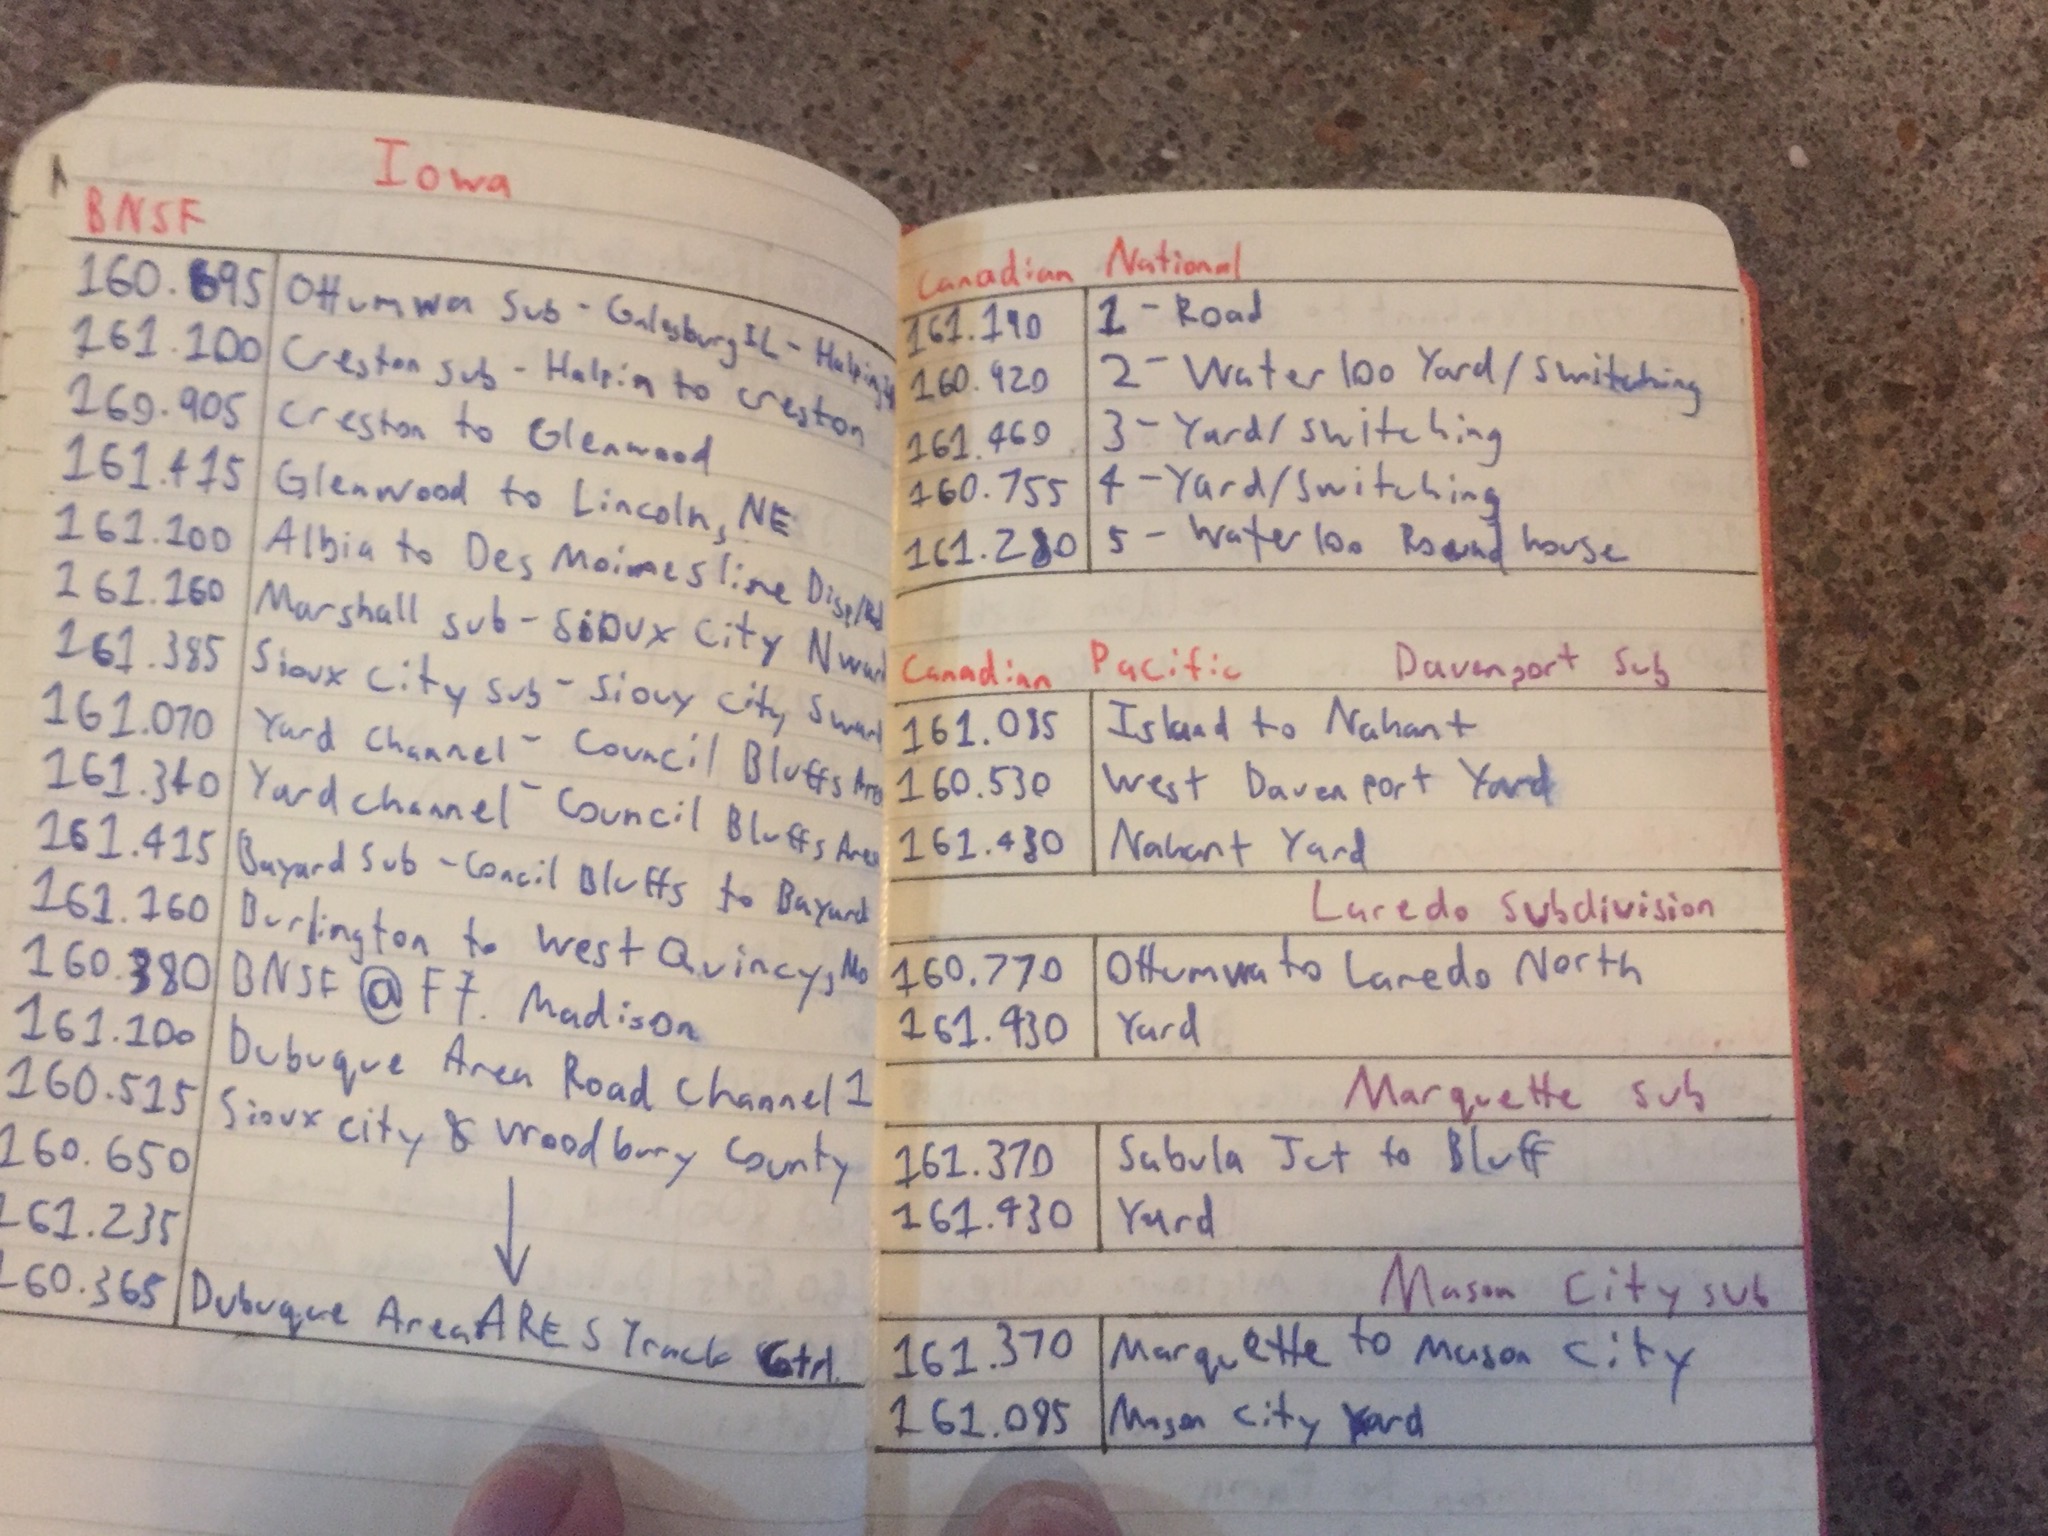 Iowa
BNSF
160.695 Ottumwa Sub - Galesburg IL - Halpin
161.100 Creston sub - Halpin to creston
160.905 Creston to Glenwood
161.415 Glenwood to Lincoln, NE
161.100 Albia to Des Moines line Disp/Rd
161.160 Marshall sub - Sioux City Nward
161.385 Sioux City sub - Siouy city Sward
161.070 Yard Channel - Council Bluffs Area
161.340 Yard channel - Council Bluffs Area
161.415 Bayard Sub - Concil Bluffs to Bayard
161.160 Burlington to West Quincy, Mo
160.380 BNSF @ FT. Madison
161.100 Dubuque Area Road Channel 1
160.515 Sioux city & Woodbury County
160.650
161.235
160.365 Dubuque Area ARES Track Ctrl.
Canadian National
161.190 1 - Road
160.920 2 - Waterloo Yard/Switching
161.460 3 - Yard/switching
160.755 4 - Yard/Switching
161.280 5 - Waterloo Round house
Canadian Pacific Davenport Sub
161.085 Island to Nahant
160.530 West Davenport Yard
161.430 Nahant Yard
Laredo Subdivision
160.770 Ottumwa to Laredo North
161.430 Yard
Marquette sub
161.370 Sabula Jct to Bluff
161.430 Yard
Mason City sub
161.370 Marquette to Mason City
161.085 Mason City Yard